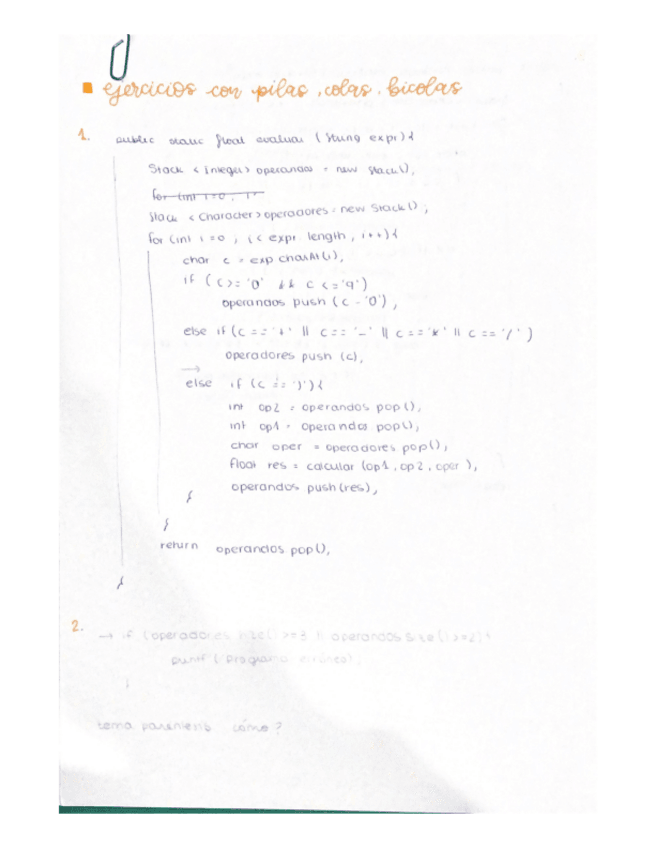 ejercicios con pilas, colas, bicolas
1. public static float evaluar (String expr){
Stack <integer> operandos = new Stack();
for (int i=0 ; i
Stack <Character> operadores = new Stack();
for (int i=0 ; i < expr. length , i++){
char c = exp charAt(i);
if (c >= '0' && c <= '9')
operandos push (c - '0');
else if (c == '+' || c == '-' || c == '*' || c == '/')
operadores push (c);
→
else if (c == ')'){
int op2 = operandos pop();
int op1 = operandos pop();
char oper = operadores pop();
float res = calcular (op1, op2, oper);
operandos push (res);
}
}
return operandos pop();
}
2.
→ if (operadores size() >=3 || operandos size() >=2){
printf ( programa erróneo);
}
tema parentesis cómo?